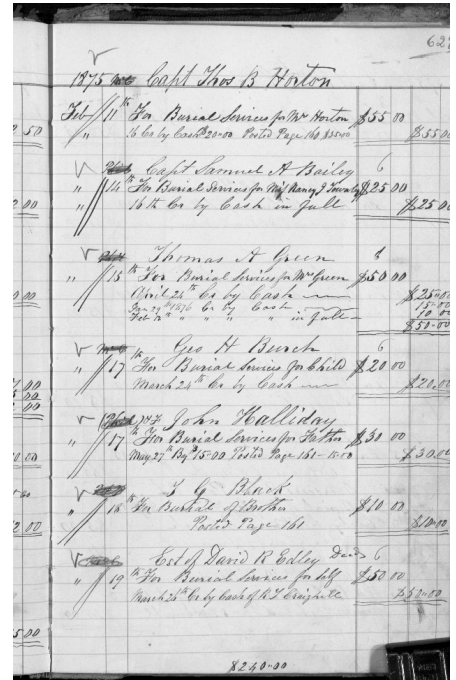 627
1875 Capt Thos B Horton
Feb 11th For Burial Services for Mr Horton $55 00
16 Cr by Cash $20-00 Posted Page 160 $35-00 $55 00
Capt Samuel A Bailey 6
" 14th For Burial Services for Nancy J $25 00
16th Cr by Cash in full $25 00
Thomas A Green 6
" 15th For Burial Services for Mr Green $50 00
April 24th Cr by Cash $25-00
Jan 29th 1876 Cr by Cash 15-00
Feb " " " " in full 10 00
$50-00
Geo H Burch 6
" 17th For Burial Services for Child $20 00
March 24th Cr by Cash $20,00
John Halliday
" 17th For Burial Services for Father $30 00
May 27th By $15-00 Posted Page 161 - 15-00 $30 00
G Black
" 18th For Burial of Brother $10 00
Posted Page 161 $10-00
Est of David R Edley Decd 6
" 19th For Burial Services for Self $50 00
March 24th Cr by Cash of $50-00
$240-00
2 50
2 00
0 00
7 00
5 00
2 00
5 00